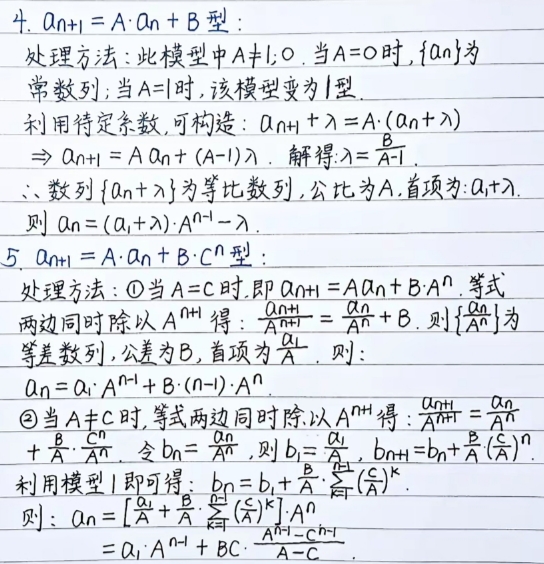 4. aₙ₊₁ = A·aₙ + B 型:
处理方法:此模型中A≠1,0. 当A=0时,{aₙ}为
常数列;当A=1时,该模型变为1型.
利用待定系数,可构造: aₙ₊₁ + λ = A·(aₙ + λ)
⇒ aₙ₊₁ = A aₙ + (A-1)λ. 解得:λ = B/(A-1).
∴ 数列{aₙ+λ}为等比数列,公比为A,首项为:a₁+λ.
则 aₙ = (a₁+λ)·Aⁿ⁻¹ - λ.
5. aₙ₊₁ = A·aₙ + B·Cⁿ 型:
处理方法:①当A=C时,即 aₙ₊₁ = A aₙ + B·Aⁿ. 等式
两边同时除以 Aⁿ⁺¹ 得: aₙ₊₁/Aⁿ⁺¹ = aₙ/Aⁿ + B. 则{aₙ/Aⁿ}为
等差数列,公差为B,首项为 a₁/A. 则:
aₙ = a₁·Aⁿ⁻¹ + B·(n-1)·Aⁿ.
②当A≠C时,等式两边同时除以 Aⁿ⁺¹ 得: aₙ₊₁/Aⁿ⁺¹ = aₙ/Aⁿ
+ B/A · Cⁿ/Aⁿ. 令 bₙ = aₙ/Aⁿ, 则 b₁ = a₁/A, bₙ₊₁ = bₙ + B/A·(C/A)ⁿ.
利用模型1即可得: bₙ = b₁ + B/A · ∑_{k=1}^{n-1} (C/A)ᵏ.
则: aₙ = [a₁/A + B/A · ∑_{k=1}^{n-1} (C/A)ᵏ]·Aⁿ
= a₁·Aⁿ⁻¹ + BC · (Aⁿ⁻¹ - Cⁿ⁻¹)/(A-C).